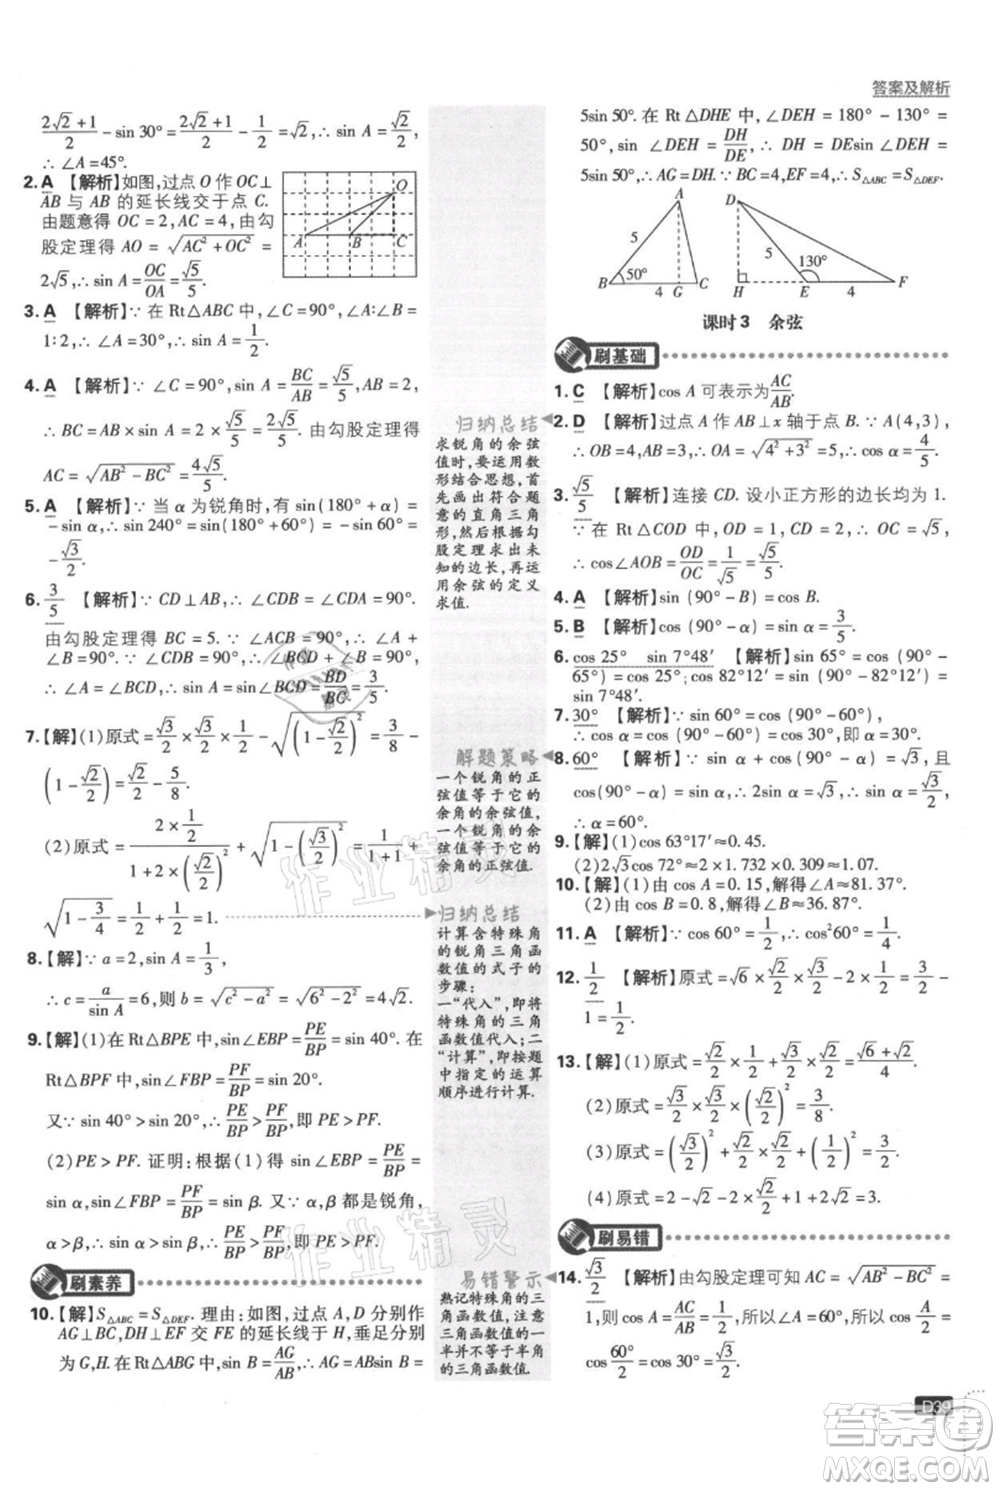 答案及解析
(2√2+1)/2 − sin 30° = (2√2+1)/2 − 1/2 = √2, ∴ sin A = √2/2,
∴ ∠A = 45°.
2. A 【解析】如图,过点 O 作 OC⊥
AB 与 AB 的延长线交于点 C.
由题意得 OC = 2, AC = 4, 由勾
股定理得 AO = √(AC² + OC²) =
2√5, ∴ sin A = OC/OA = √5/5.
O
A B C
3. A 【解析】∵ 在 Rt△ABC 中, ∠C = 90°, ∠A:∠B =
1:2, ∴ ∠A = 30°, ∴ sin A = 1/2.
4. A 【解析】∵ ∠C = 90°, sin A = BC/AB = √5/5, AB = 2,
∴ BC = AB × sin A = 2 × √5/5 = 2√5/5. 由勾股定理得
AC = √(AB² − BC²) = 4√5/5.
5. A 【解析】∵ 当 α 为锐角时, 有 sin(180° + α) =
−sin α, ∴ sin 240° = sin(180° + 60°) = −sin 60° =
−√3/2.
6. 3/5 【解析】∵ CD⊥AB, ∴ ∠CDB = ∠CDA = 90°.
由勾股定理得 BC = 5. ∵ ∠ACB = 90°, ∴ ∠A +
∠B = 90°. ∵ ∠CDB = 90°, ∴ ∠B + ∠BCD = 90°,
∴ ∠A = ∠BCD, ∴ sin A = sin∠BCD = BD/BC = 3/5.
7. 【解】(1)原式 = √3/2 × √3/2 − √2/2 − √((1 − √2/2)²) = 3/4 − √2/2 −
(1 − √2/2) = 3/4 − √2/2 − 1 + √2/2 =
(2)原式 = (2 × 1/2)/(1 + 2 × √2/2 × √2/2) + √(1 − (√3/2)²) = 1/(1+1) +
√(1 − 3/4) = 1/2 + 1/2 = 1.
8. 【解】∵ a = 2, sin A = 1/3,
∴ c = a/sin A = 6, 则 b = √(c² − a²) = √(6² − 2²) = 4√2.
9. 【解】(1)在 Rt△BPE 中, sin∠EBP = PE/BP = sin 40°. 在
Rt△BPF 中, sin∠FBP = PF/BP = sin 20°.
∵ sin 40° > sin 20°, ∴ PE/BP > PF/BP, 即 PE > PF.
(2)PE > PF. 证明: 根据(1)得 sin∠EBP = PE/BP =
sin α, sin∠FBP = PF/BP = sin β. 又∵ α, β 都是锐角,
α > β, ∴ sin α > sin β, ∴ PE/BP > PF/BP, 即 PE > PF.
刷素养
10. 【解】S△ABC = S△DEF. 理由: 如图, 过点 A, D 分别作
AG⊥BC, DH⊥EF 交 FE 的延长线于 H, 垂足分别
为 G, H. 在 Rt△ABG 中, sin B = AG/AB, ∴ AG = ABsin B =
归纳总结
求锐角的余弦
值时,要运用数
形结合思想,首
先画出符合题
意的直角三角
形,然后根据勾
股定理求出未
知的边长,再运
用余弦的定义
求值.
解题策略
一个锐角的正
弦值等于它的
余角的余弦值,
一个锐角的余
弦值等于它的
余角的正弦值.
归纳总结
计算含特殊角
的锐角三角函
数值的式子的
步骤:
一“代入”,即将
特殊角的三角
函数值代入;二
“计算”,即按题
中指定的运算
顺序进行计算.
易错警示
熟记特殊角的三
角函数值,注意
三角函数值的一
半并不等于半角
的三角函数值.
5sin 50°. 在 Rt△DHE 中, ∠DEH = 180° − 130° =
50°, sin ∠DEH = DH/DE, ∴ DH = DEsin∠DEH =
5sin 50°, ∴ AG = DH. ∵ BC = 4, EF = 4, ∴ S△ABC = S△DEF.
A D
5 5 130°
B 50° 4 G C H E 4 F
课时3 余弦
刷基础
1. C 【解析】cos A 可表示为 AC/AB.
2. D 【解析】过点 A 作 AB⊥x 轴于点 B. ∵ A(4,3),
∴ OB = 4, AB = 3, ∴ OA = √(4² + 3²) = 5, ∴ cos α = 4/5.
3. √5/5 【解析】连接 CD. 设小正方形的边长均为 1.
∵ 在 Rt△COD 中, OD = 1, CD = 2, ∴ OC = √5,
∴ cos∠AOB = OD/OC = 1/√5 = √5/5.
4. A 【解析】sin(90° − B) = cos B.
5. B 【解析】sin(90° − α) = cos α = 3/5.
6. cos 25° sin 7°48′ 【解析】sin 65° = cos(90° −
65°) = cos 25°, cos 82°12′ = sin(90° − 82°12′) =
sin 7°48′.
7. 30° 【解析】∵ sin 60° = cos(90° − 60°) = cos α,
∴ cos α = cos(90° − 60°) = cos 30°, 即 α = 30°.
8. 60° 【解析】∵ sin α = cos(90° − α), 2sin α = √3, 且
cos(90° − α) + sin α = √3, ∴ 2sin α = √3, 即 sin α = √3/2,
∴ α = 60°.
9. 【解】(1)cos 63°17′ ≈ 0.45.
(2)2√3cos 72° ≈ 2 × 1.732 × 0.309 ≈ 1.07.
10. 【解】(1)由 cos A = 0.15, 解得 ∠A ≈ 81.37°.
(2)由 cos B = 0.8, 解得 ∠B ≈ 36.87°.
11. A 【解析】∵ cos 60° = 1/2, ∴ cos²60° = (1/2)² = 1/4.
12. 1/2 【解析】原式 = √6 × √2/2 × √3/2 − 2 × 1/2 = 3/2 −
1 = 1/2.
13. 【解】(1)原式 = √2/2 × 1/2 + √2/2 × √3/2 = (√6+√2)/4.
(2)原式 = √2/2 × √3/2 × √2/2 × √3/2 = 3/8.
(3)原式 = (√3/2)² − √2/2 × √2/2 + (√2/2)² = 3/4.
(4)原式 = 2 − √2 − 2 × 1/2 + √2 + 2 = 3.
刷易错
14. √3/2 【解析】由勾股定理可知 AC = √(AB² − BC²) =
1, 则 cos A = AC/AB = 1/2, 所以 ∠A = 60°, 所以 cos A/2 =
cos 60°/2 = cos 30° = √3/2.
D39
作业精灵
作业精灵
答案圈
MXQE.COM